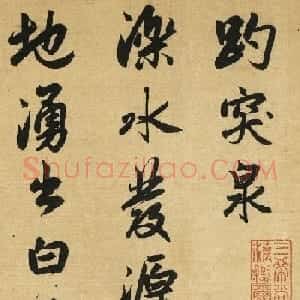 趵突泉
濼水發源
地湧出白
Shufaziliao.com